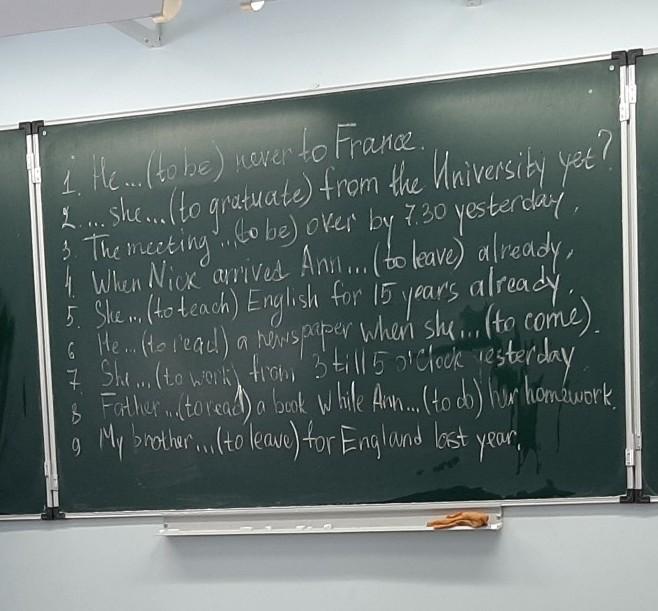 1. He... (to be) never to France.
2. ... she... (to gratuate) from the University yet?
3. The meeting ... (to be) over by 7.30 yesterday.
4. When Nick arrived Ann... (to leave) already.
5. She... (to teach) English for 15 years already.
6 He... (to read) a newspaper when she... (to come).
7. She... (to work) from 3 till 5 o'clock yesterday
8 Father... (to read) a book while Ann... (to do) her homework.
9 My brother... (to leave) for England last year.